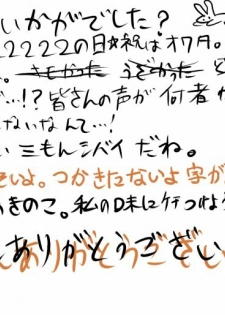 いかがでした？
22222の日は祝はオワ月。
。きもかった うざかった
…!? 皆さんの声が何者か
ないなんて…!
い三もんシバイだね。
そいよ。つかきたないよ字が
きのこ。私のO味にケチつけよう
ありがとうござい